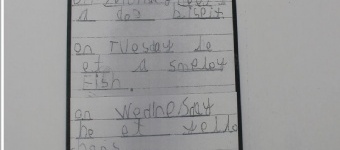 a dog biscit.
on Tuesday he
et a smeley
fish.
on Wednesday
he et yello